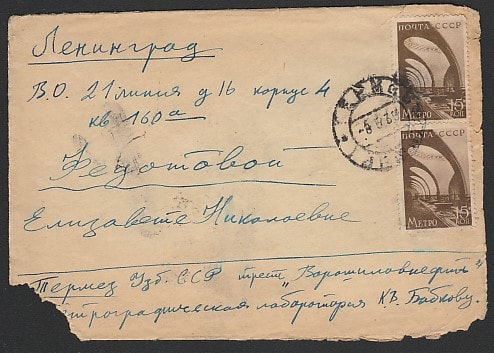 Ленинград
В.О. 21 линия д 16 корпус 4
кв 160а
Федотовой
Елизавете Николаевне
Термез Узб. ССР трест "Ворошиловнефть"
петрографическая лаборатория К.В. Бабкову.
ПОЧТА СССР
МЕТРО 15 КОП
ПОЧТА СССР
МЕТРО 15 КОП